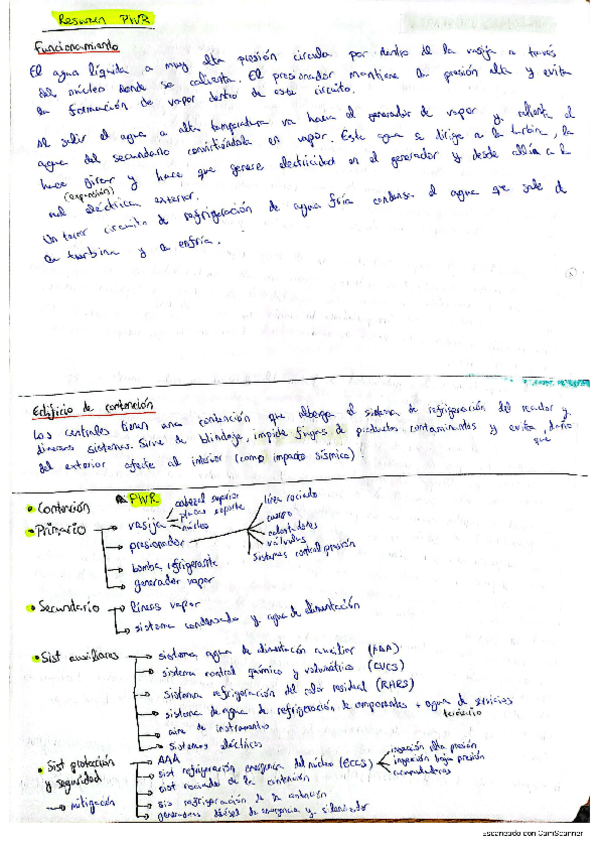 Resumen PWR
Funcionamiento
El agua líquida a muy alta presión circula por dentro de la vasija a través
del núcleo donde se calienta. El presionador mantiene la presión alta y evita
la formación de vapor dentro de este circuito.
Al salir el agua a alta temperatura va hacia el generador de vapor y calienta el
agua del secundario convirtiéndola en vapor. Este agua se dirige a la turbina, la
hace girar y hace que genere electricidad en el generador y desde allí a la
(expansión)
red eléctrica exterior.
Un tercer circuito de refrigeración de agua fría condensa el agua que sale d
la turbina y la enfría.
Edificio de contención
Las centrales tienen una contención que alberga el sistema de refrigeración del reactor y
diversos sistemas. Sirve de blindaje, impide fugas de productos contaminantes y evita que daño
del exterior afecte al interior (como impacto sísmico)
PWR
Contención
Primario
vasija
cabezal superior
placas soporte
núcleo
presionador
línea rociado
cuerpo
calentadores
válvulas
sistemas control presión
bomba refrigerante
generador vapor
Secundario
líneas vapor
sistema condensado y agua de alimentación
Sist auxiliares
sistema agua de alimentación auxiliar (AAA)
sistema control químico y volumétrico (CVCS)
sistema refrigeración del calor residual (RHRS)
sistema de agua de refrigeración de componentes + agua de servicios
terciario
aire de instrumentos
sistemas eléctricos
Sist protección
y seguridad
mitigación
AAA
sist refrigeración emergencia del núcleo (ECCS)
inyección alta presión
inyección baja presión
acumuladores
sist rociado de la contención
sis refrigeración de la contención
generadores diésel de emergencia y
Escaneado con CamScanner